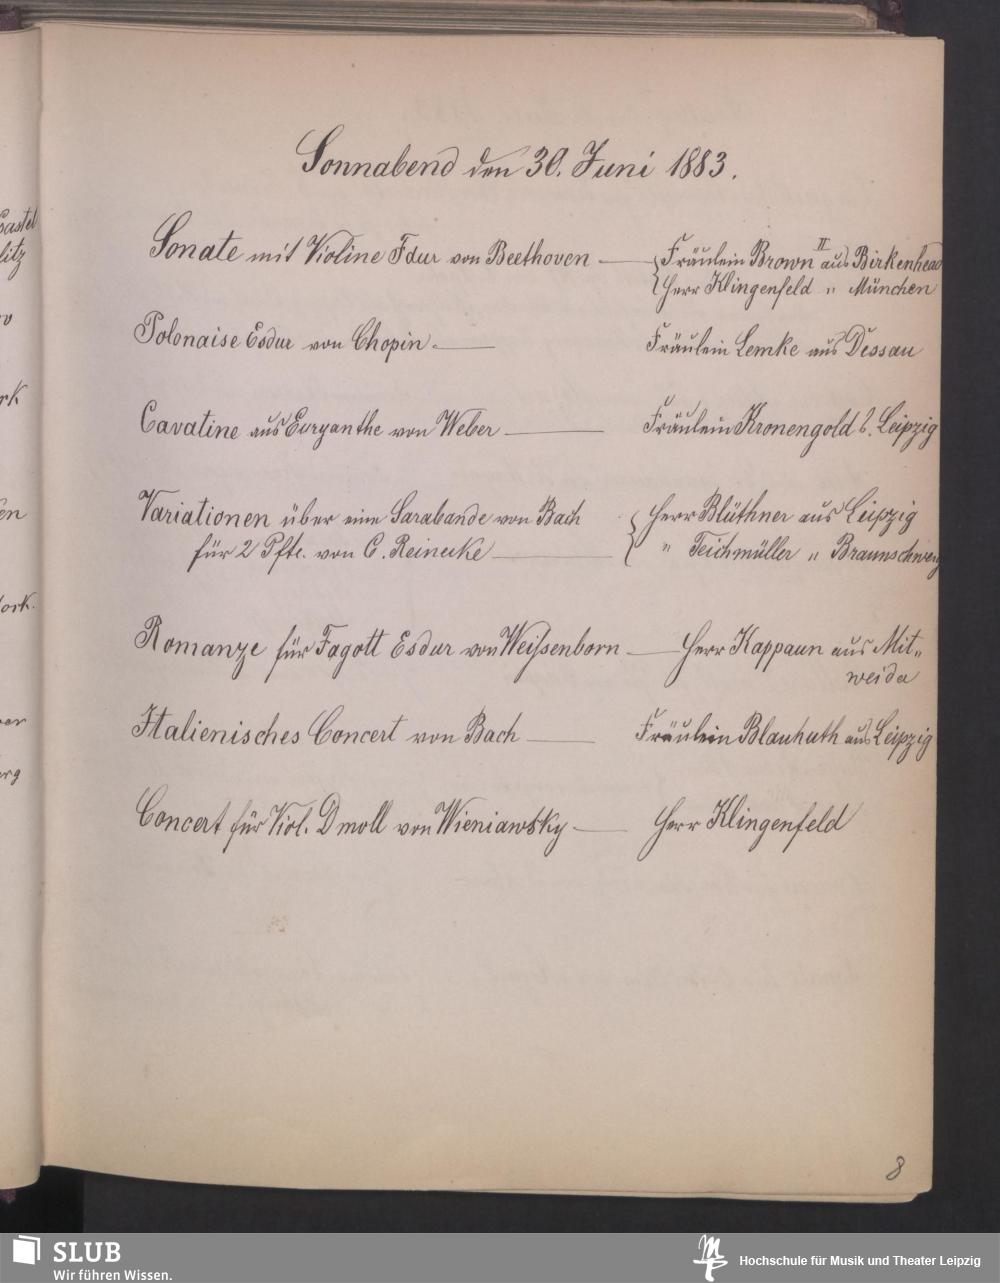 Sonnabend den 30. Juni 1883.
Sonate mit Violine Fdur von Beethoven — { Fräulein Brown II aus Birkenhead
Herr Klingenfeld " München
Polonaise Esdur von Chopin. — Fräulein Lemke aus Dessau
Cavatine aus Euryanthe von Weber — Fräulein Kronengold b. Leipzig
Variationen über eine Sarabande von Bach { Herr Blüthner aus Leipzig
für 2 Pfte. von C. Reinecke — " Teichmüller " Braunschweig
Romanze für Fagott Esdur von Weißenborn — Herr Kappaun aus Mit„
weida
Italienisches Concert von Bach — Fräulein Blauhuth aus Leipzig
Concert für Viol. Dmoll von Wieniawsky — Herr Klingenfeld
8
SLUB
Wir führen Wissen.
Hochschule für Musik und Theater Leipzig